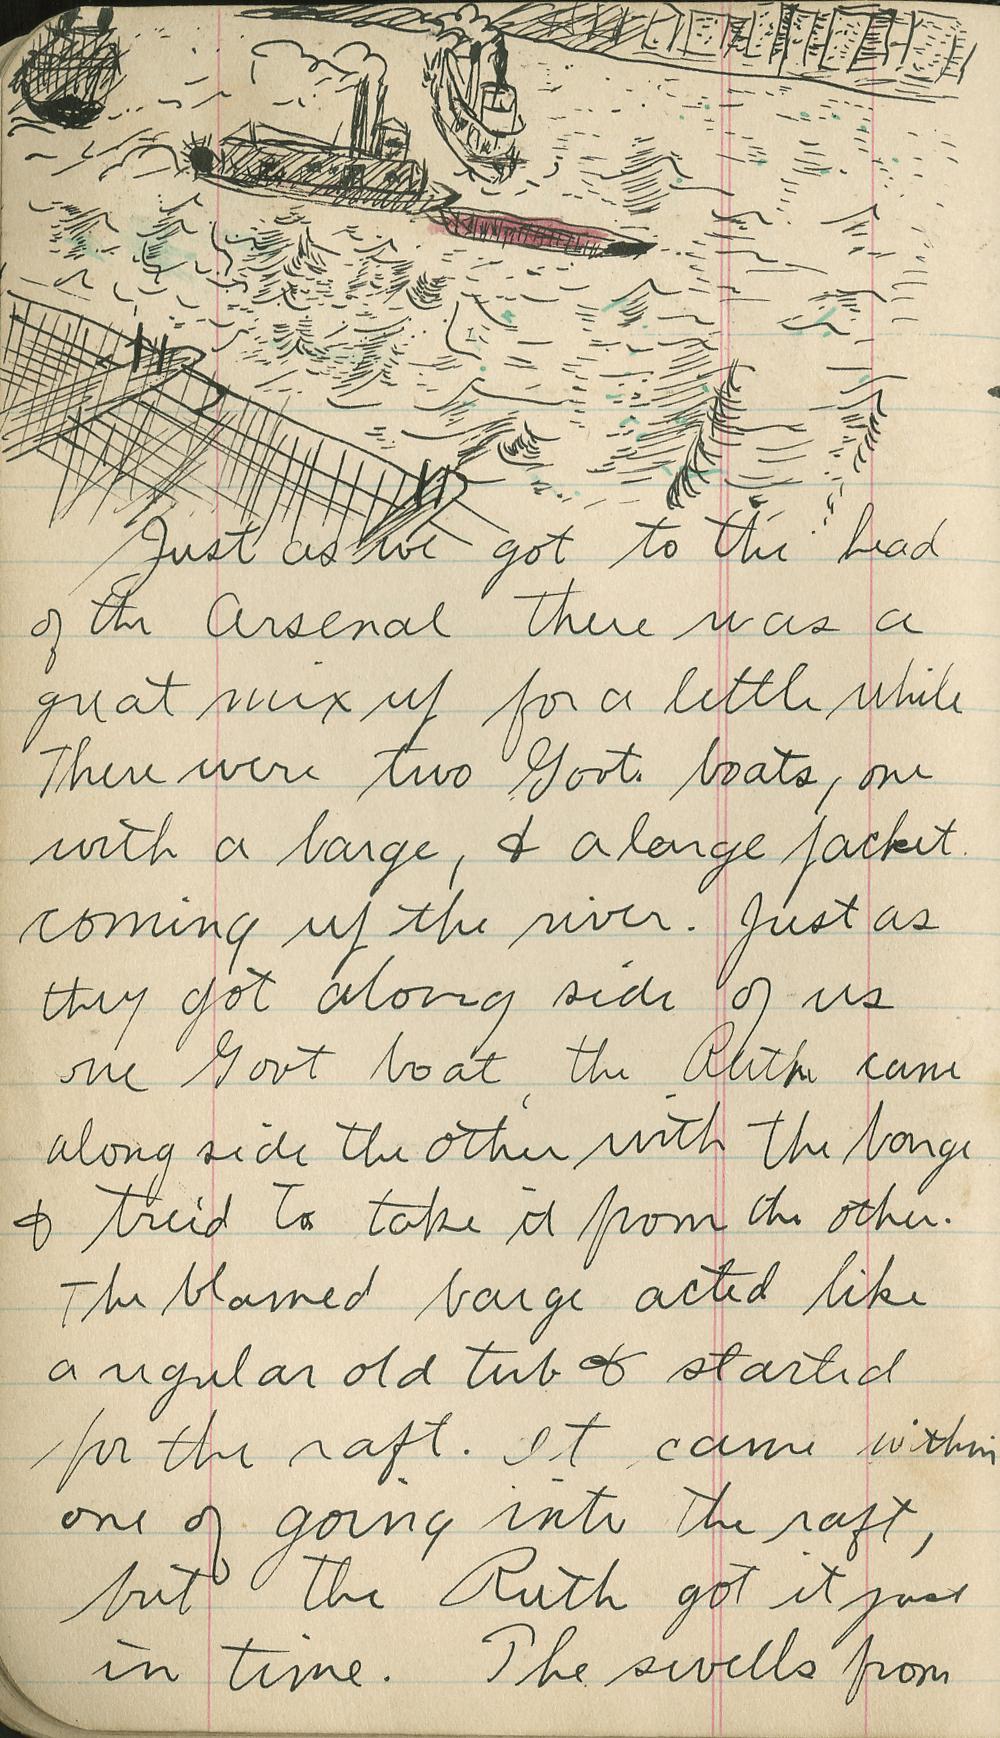 Just as we got to the head
of the Arsenal there was a
great mix up for a little while
There were two Govt. boats, one
with a barge, & a large packet.
coming up the river. Just as
they got along side of us
one Govt boat, the Ruth came
along side the other with the barge
& treid to take it from the other.
The blamed barge acted like
a regular old tub & started
for the raft. It came within
one of going into the raft,
but the Ruth got it just
in time. The swells from